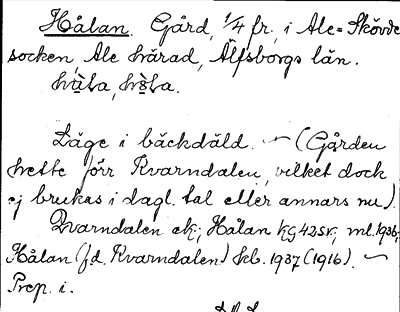 Hålan. Gård, 1/4 fr., i Ale-Skövde
socken Ale härad, Älfsborgs län.
Läge i bäckdäld. — (Gården
hette förr Kvarndalen, vilket dock
ej brukas i dagl. tal eller annars nu).
Qvarndalen ek; Hålan kg 42 SV; ml. 1936;
Hålan (f.d. Kvarndalen) kb. 1937 (1916). —
Prep. i.